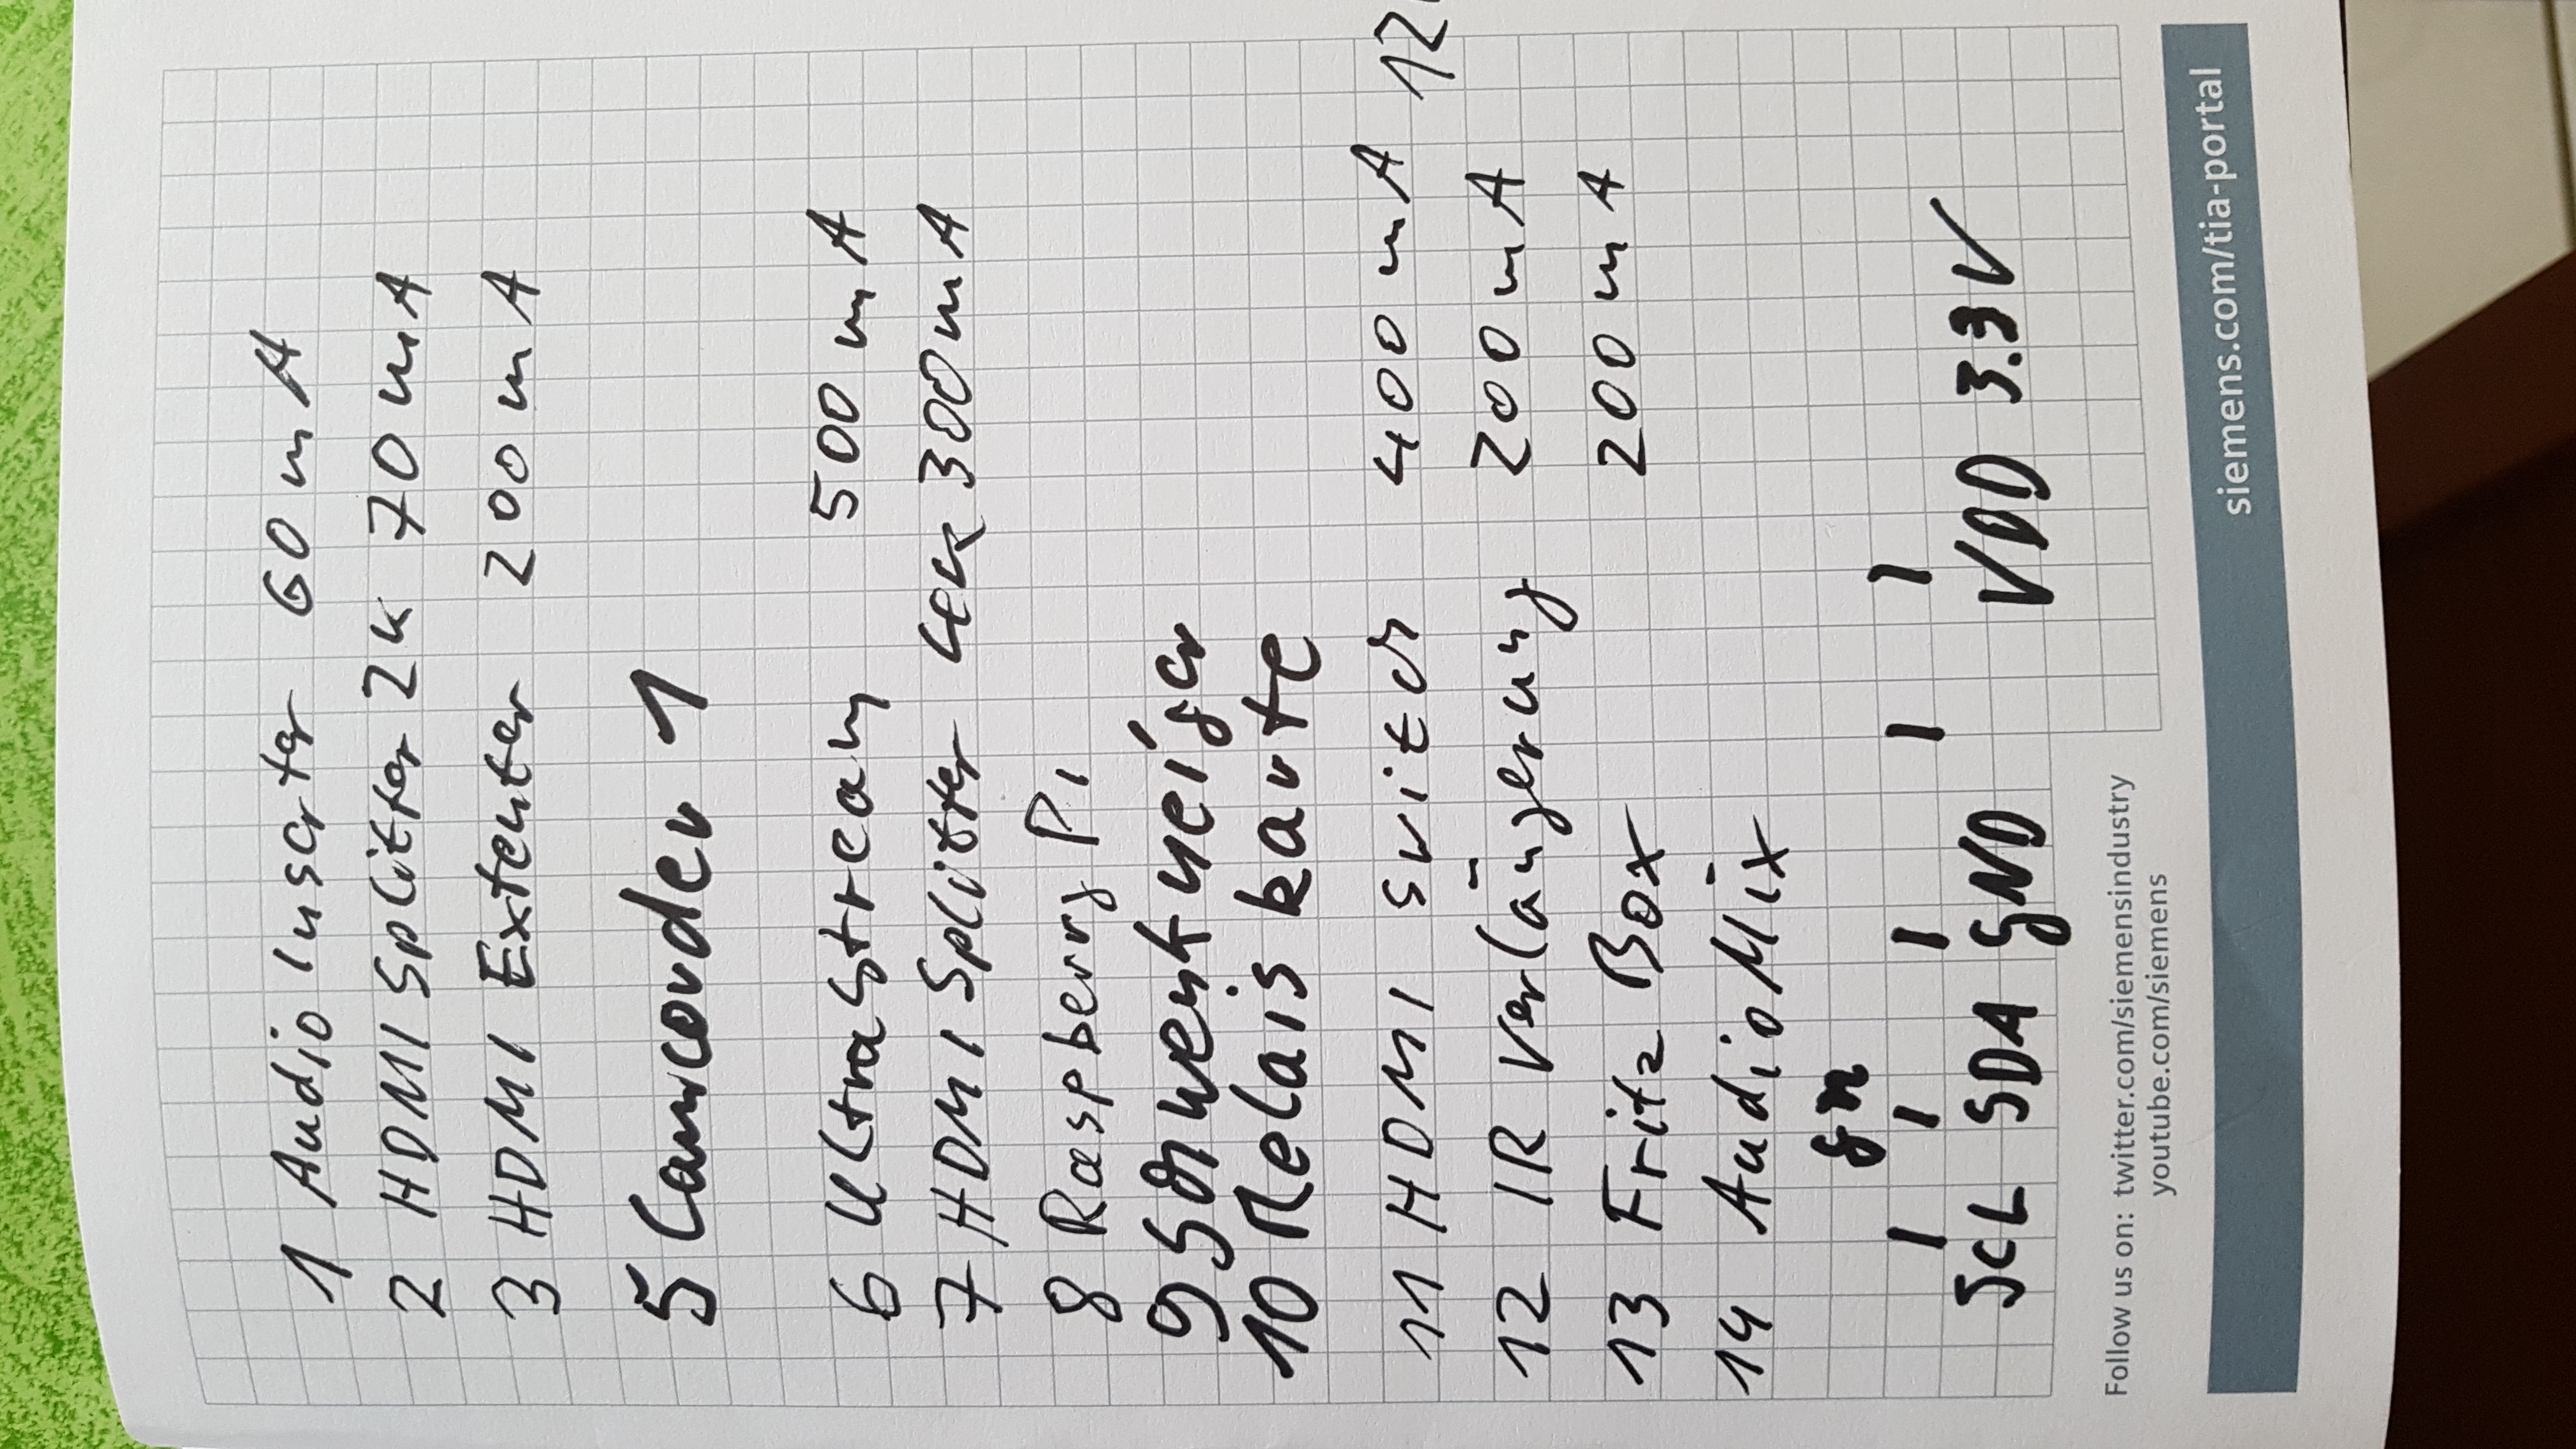 1 Audio Inserter 60 mA
2 HDMI Splitter 2k 70 mA
3 HDMI Extenter 200 mA
5 Camcorder 1
6 UltraStream 500 mA
7 HDMI Splitter 4k 300 mA
8 Raspberry Pi
9 Schwenkneiger
10 Relais karte
11 HDMI Switch 400 mA 12
12 IR Verlängerung 200 mA
13 Fritz Box 200 mA
14 Audio Mix
gn
SCL SDA GND VDD 3.3V
Follow us on: twitter.com/siemensindustry
youtube.com/siemens
siemens.com/tia-portal